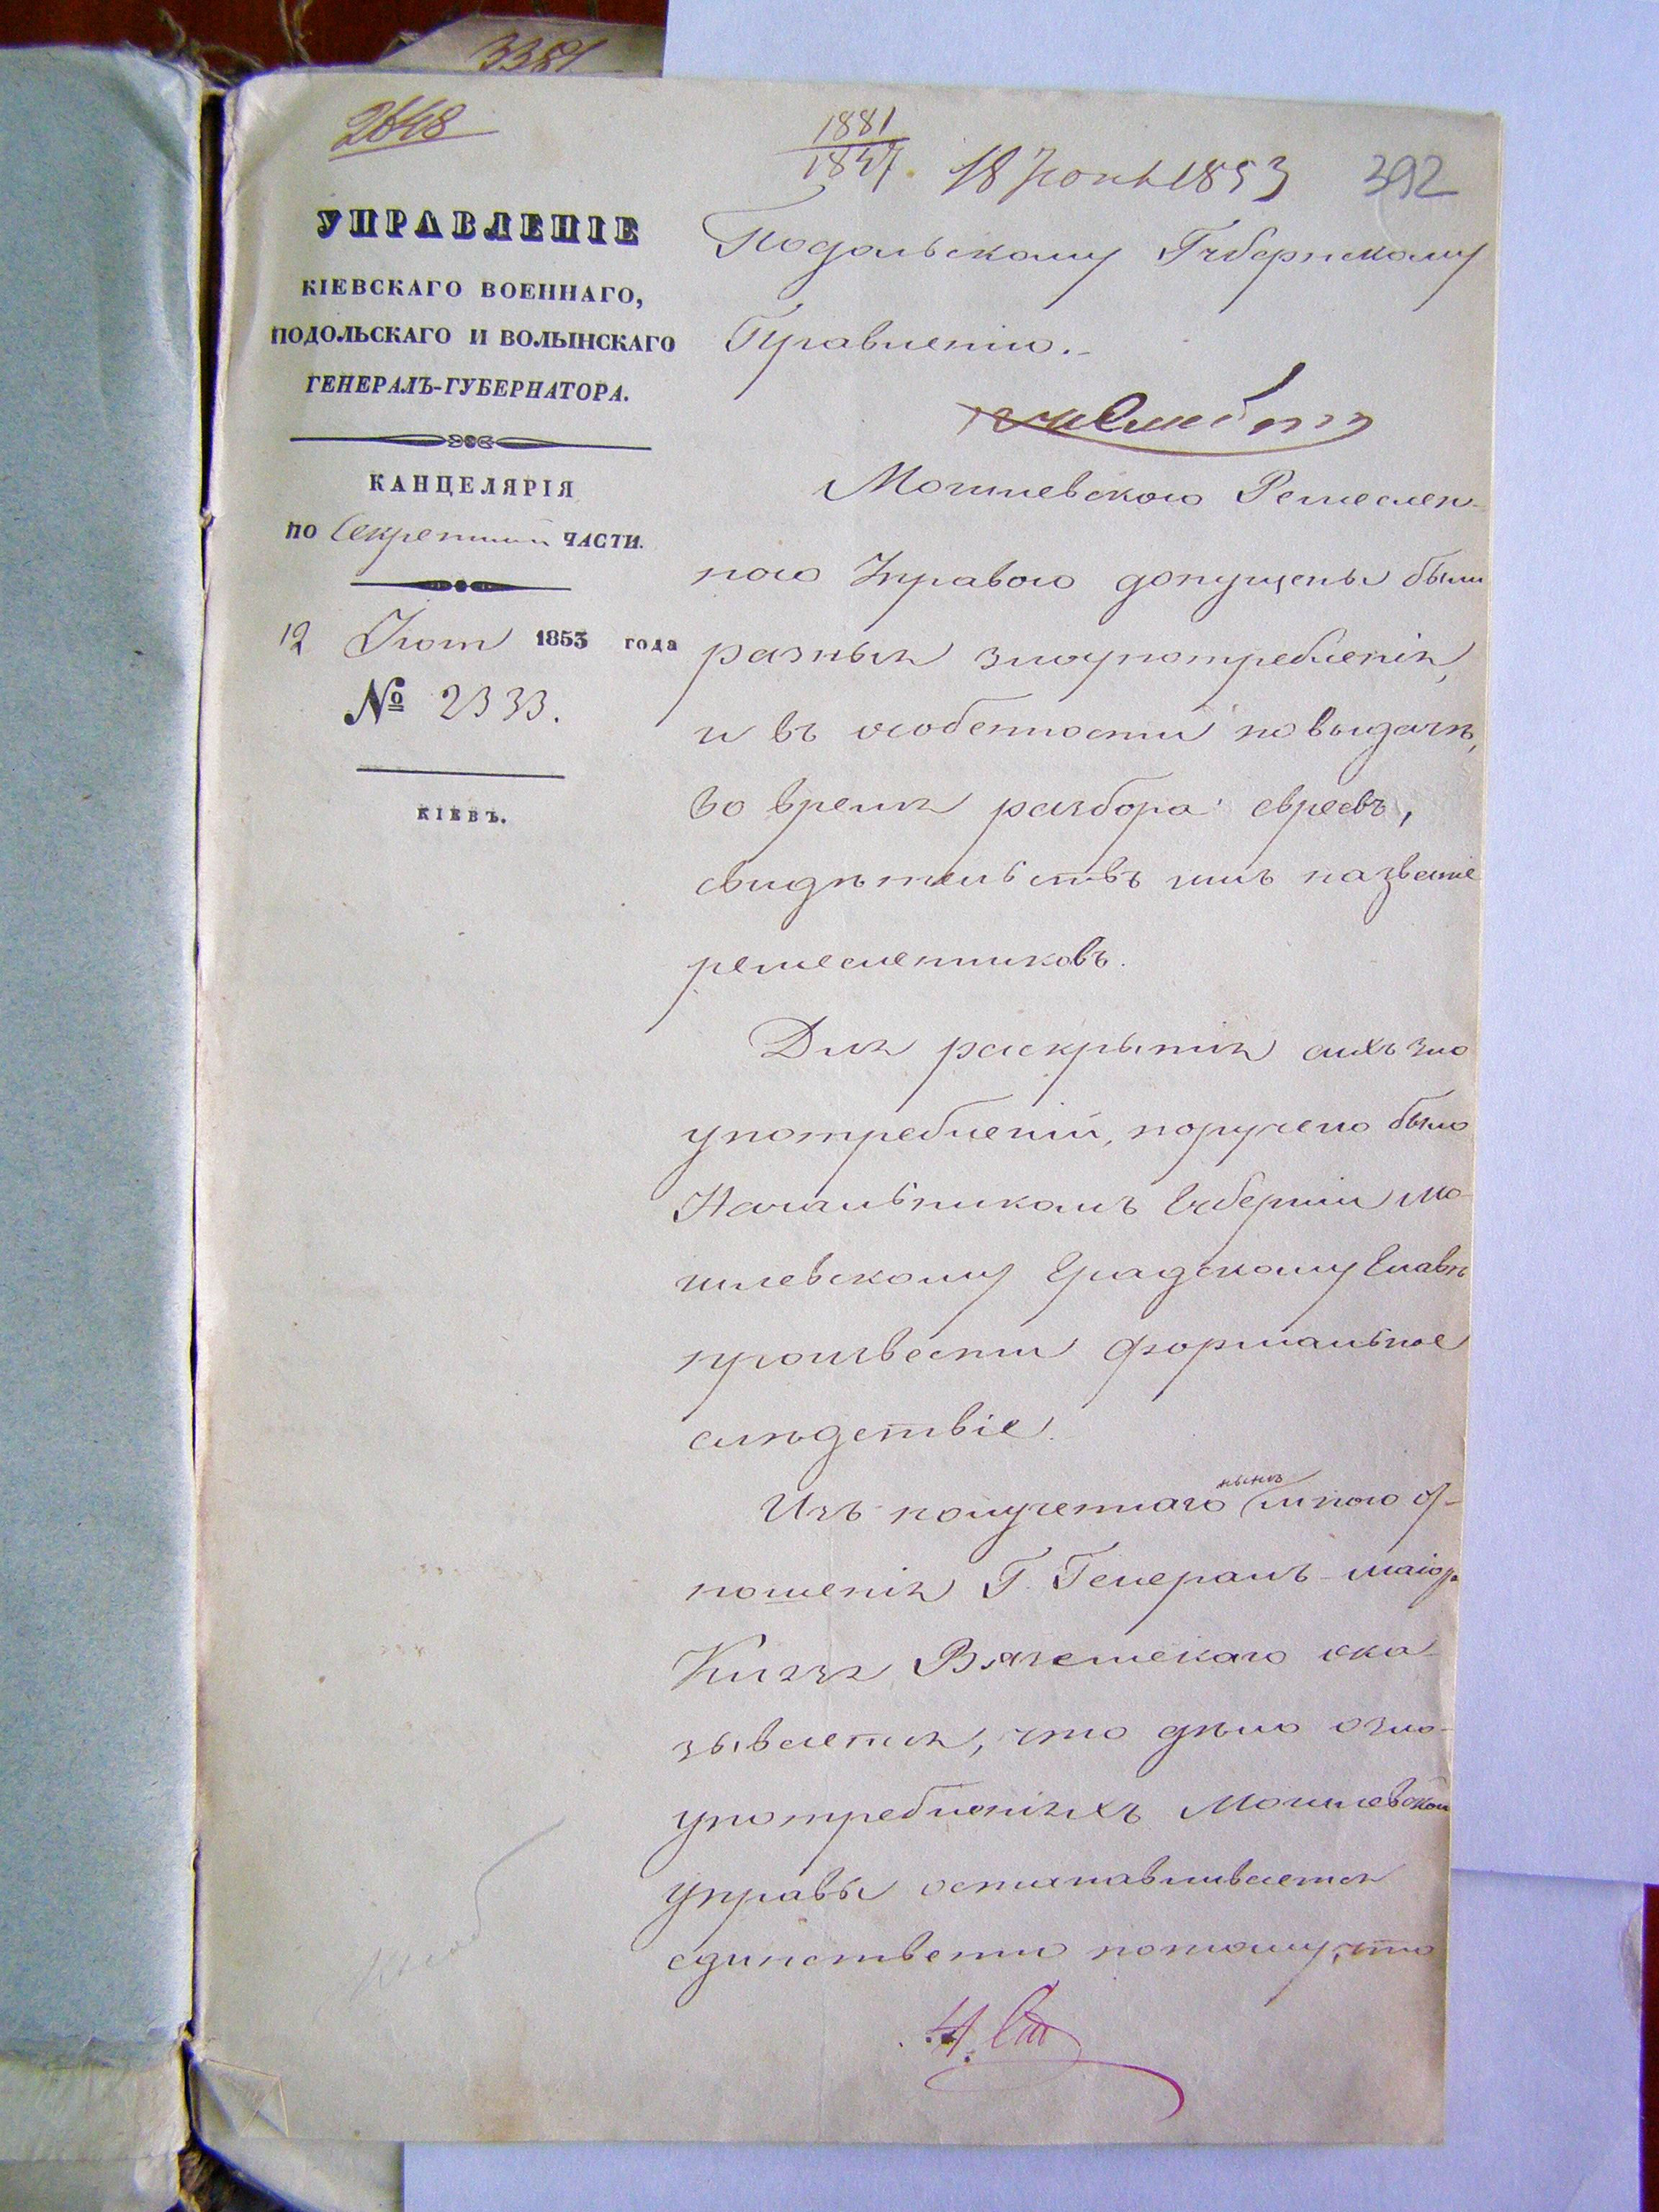 3381
2648
1881
1847
18 Іюня 1853
392
УПРАВЛЕНІЕ
КІЕВСКАГО ВОЕННАГО,
ПОДОЛЬСКАГО И ВОЛЫНСКАГО
ГЕНЕРАЛЪ-ГУБЕРНАТОРА.
КАНЦЕЛЯРІЯ
ПО Секретной ЧАСТИ.
12 Іюня 1853 года
№ 2333.
КІЕВЪ.
Подольскому Губернскому
Правленію.
Могилевскою Ремеслен-
ною Управою допущены были
разныя злоупотребленія,
и въ особенности по выдачѣ,
во время разбора евреевъ,
свидѣтельствъ имъ на званіе
ремесленниковъ.
Для раскрытія сихъ зло
употребленій, поручено было
Начальникомъ Губерніи Мо-
гилевскому Градскому Главѣ
произвести формальное
слѣдствіе.
Изъ полученнаго нынѣ мною от-
ношенія Г. Генералъ-маіора
Князя Вяземскаго ока-
зывается, что дѣло о зло-
употребленіяхъ Могилевской
управы останавливается
единственно потому, что